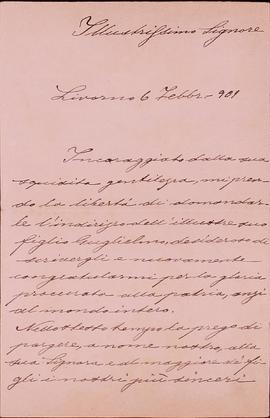 Illustrissimo Signore
Livorno 6 Febbr. 901
Incoraggiato dalla sua
squisita gentilezza, mi pren-
do la libertà di domandar-
le l'indirizzo dell'illustre suo
figlio Guglielmo, desideroso di
scrivergli e nuovamente
congratularmi per la gloria
procurata alla patria, anzi
al mondo intero.
Nello stesso tempo la prego di
porgere, a nome nostro, alla
sua Signora e al maggiore dei fi-
gli i nostri più sinceri